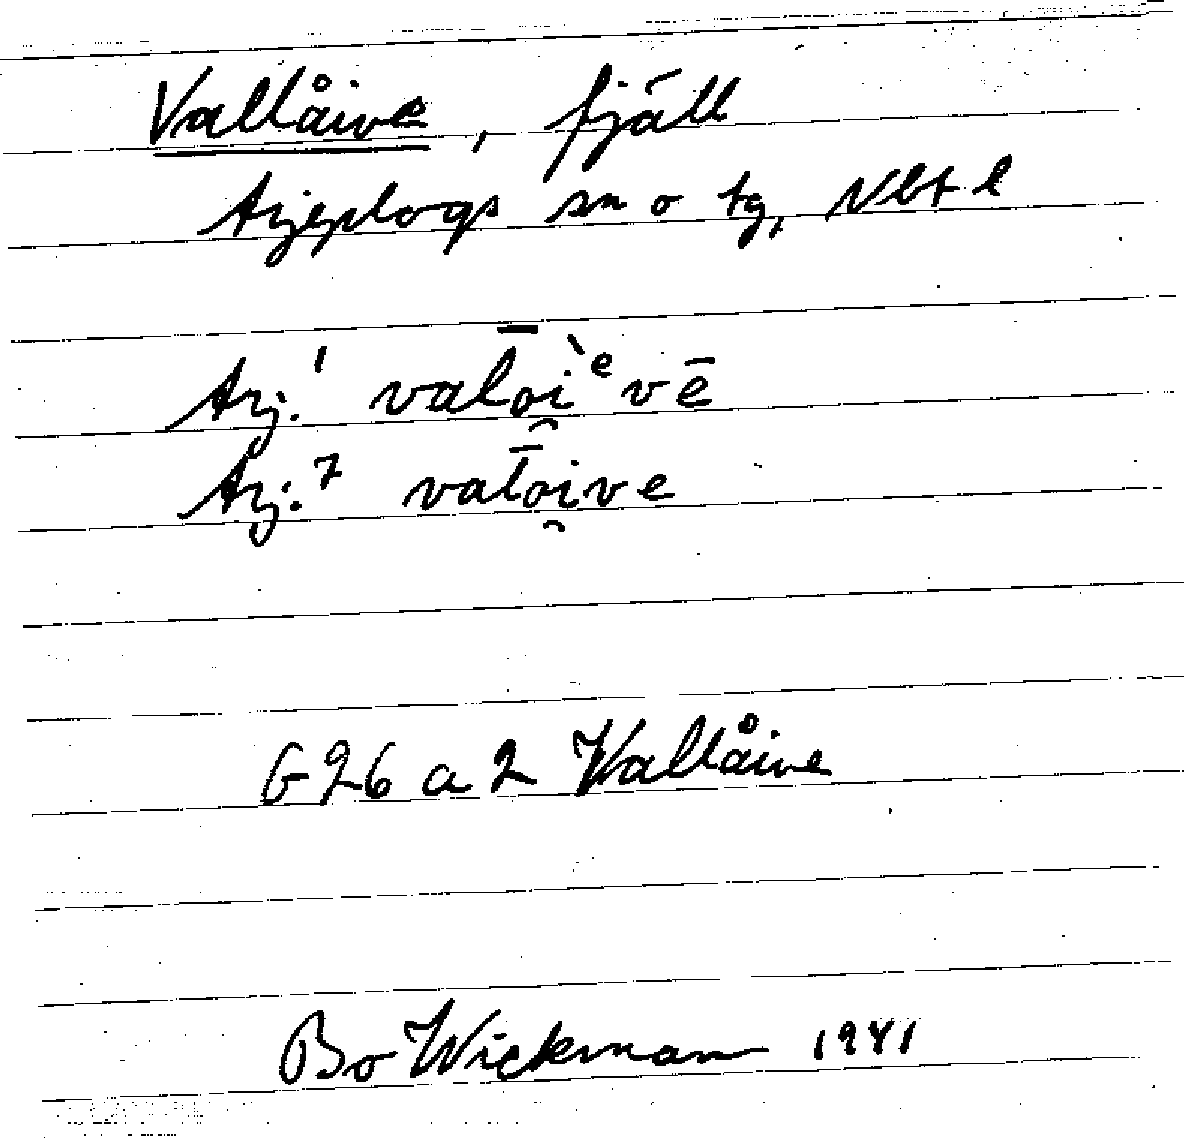 Vallåive, fjäll
Arjeplogs sn o tg, Nbt l
Arj.¹ val̅o̯iˋᵉvē
Arj.⁷ val̅o̯ive
G26 a 2 Vallåive
Bo Wickman 1941